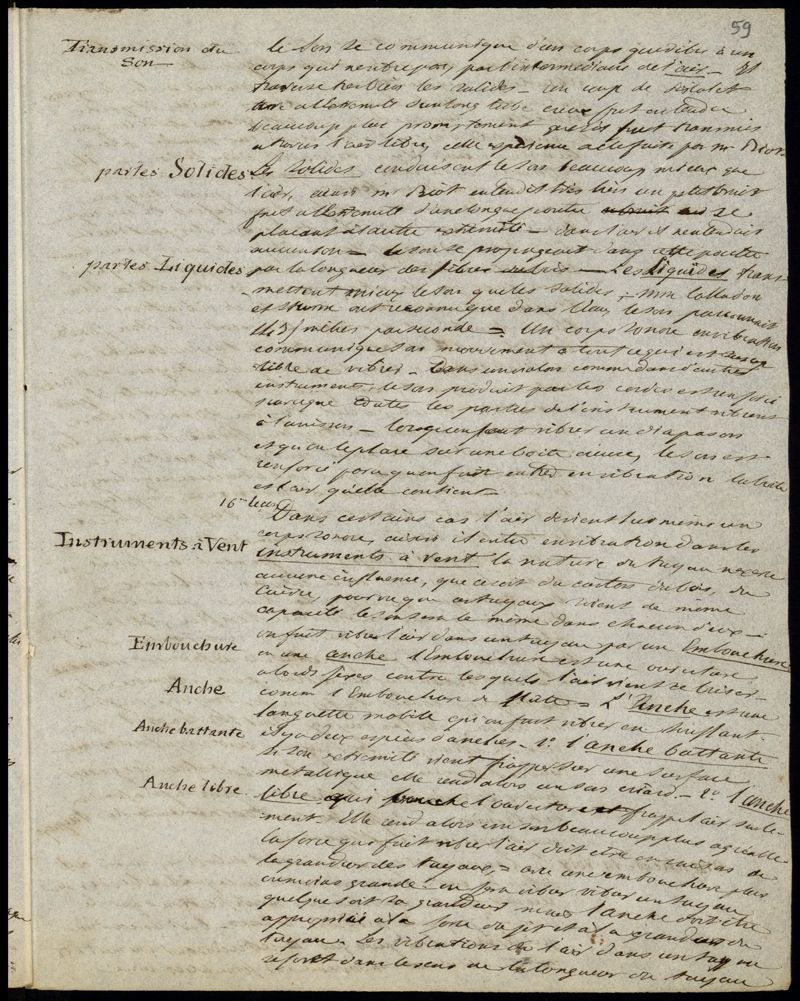 59
Transmission du
Son
le Son se communique d'un corps
corps qui par l'intermédiaire de l'air - Il
traverse très bien les solides - un coup de pistolet
a l'extremité d'un long tube creux fut entendu
beaucoup plus promptement que s'il fut transmis
a travers l'air libre, cette expérience a été faite par mr Biot
partes Solides
Les solides conduisent le son beaucoup mieux que
l'air, ainsi mr Biot entendit très bien un petit bruit
fait a l'extremité d'une longue poutre se
placant à l'autre extremité - dans l'air il n'entendait
aucun son - le son se propageait dans cette poutre
partes Liquides
par la longueur des fibres - Les Liquides trans-
mettent mieux le son que les solides ; mm Colladon
et Sturm ont reconnu que dans l'eau le son parcourait
1435 mètres par seconde = Un corps sonore en vibration
communique son mouvement à tout ce qui est
-tible de vibrer - Dans un violon comme dans d'autres
instruments, le son produit par les cordes est renforcé
parceque toutes les parties de l'instrument vibrent
à l'unisson - lorsqu'on fait vibrer un diapason
et qu'on le place sur une boite creuse, le son est
renforcé parce qu'on fait entrer en vibration la boite
et l'air qu'elle contient
16me Leçon
Dans certains cas l'air devient lui même un
Instruments à Vent
corps sonore, ainsi il entre en vibration dans les
instruments à vent la nature du tuyau n'exerce
aucune influence, que ce soit du carton du bois, du
cuivre, pourvu que les tuyaux soient de même
capacité le son sera le même dans chacun d'eux -
Embouchure
on fait vibrer l'air dans un tuyau par un Embouchure
ou une anche l'Embouchure est une ouverture
Anche
contre lesquels l'air vient se briser
comme l'Embouchure de flûte = L'Anche est une
languette mobile qu'on fait vibrer en soufflant.
Anche battante
il y a deux espèces d'anches - 1o l'anche battante
si son extremité vient frapper sur une surface
métallique elle rend alors un son criard - 2o l'anche
Anche libre
libre qui l'ouverture et frappe l'air seule-
ment. Elle rend alors un son beaucoup plus agréable.
la force qui fait vibrer l'air doit être en raison de
la grandeur des tuyaux, = avec une embouchure plus
ou moins grande on fera vibrer un tuyau
quelque soit sa grandeur mais l'anche doit être
approprié a la force du jet et a la grandeur du
tuyau. Les vibrations de l'air dans un tuyau
se font dans le sens de la longueur du tuyau